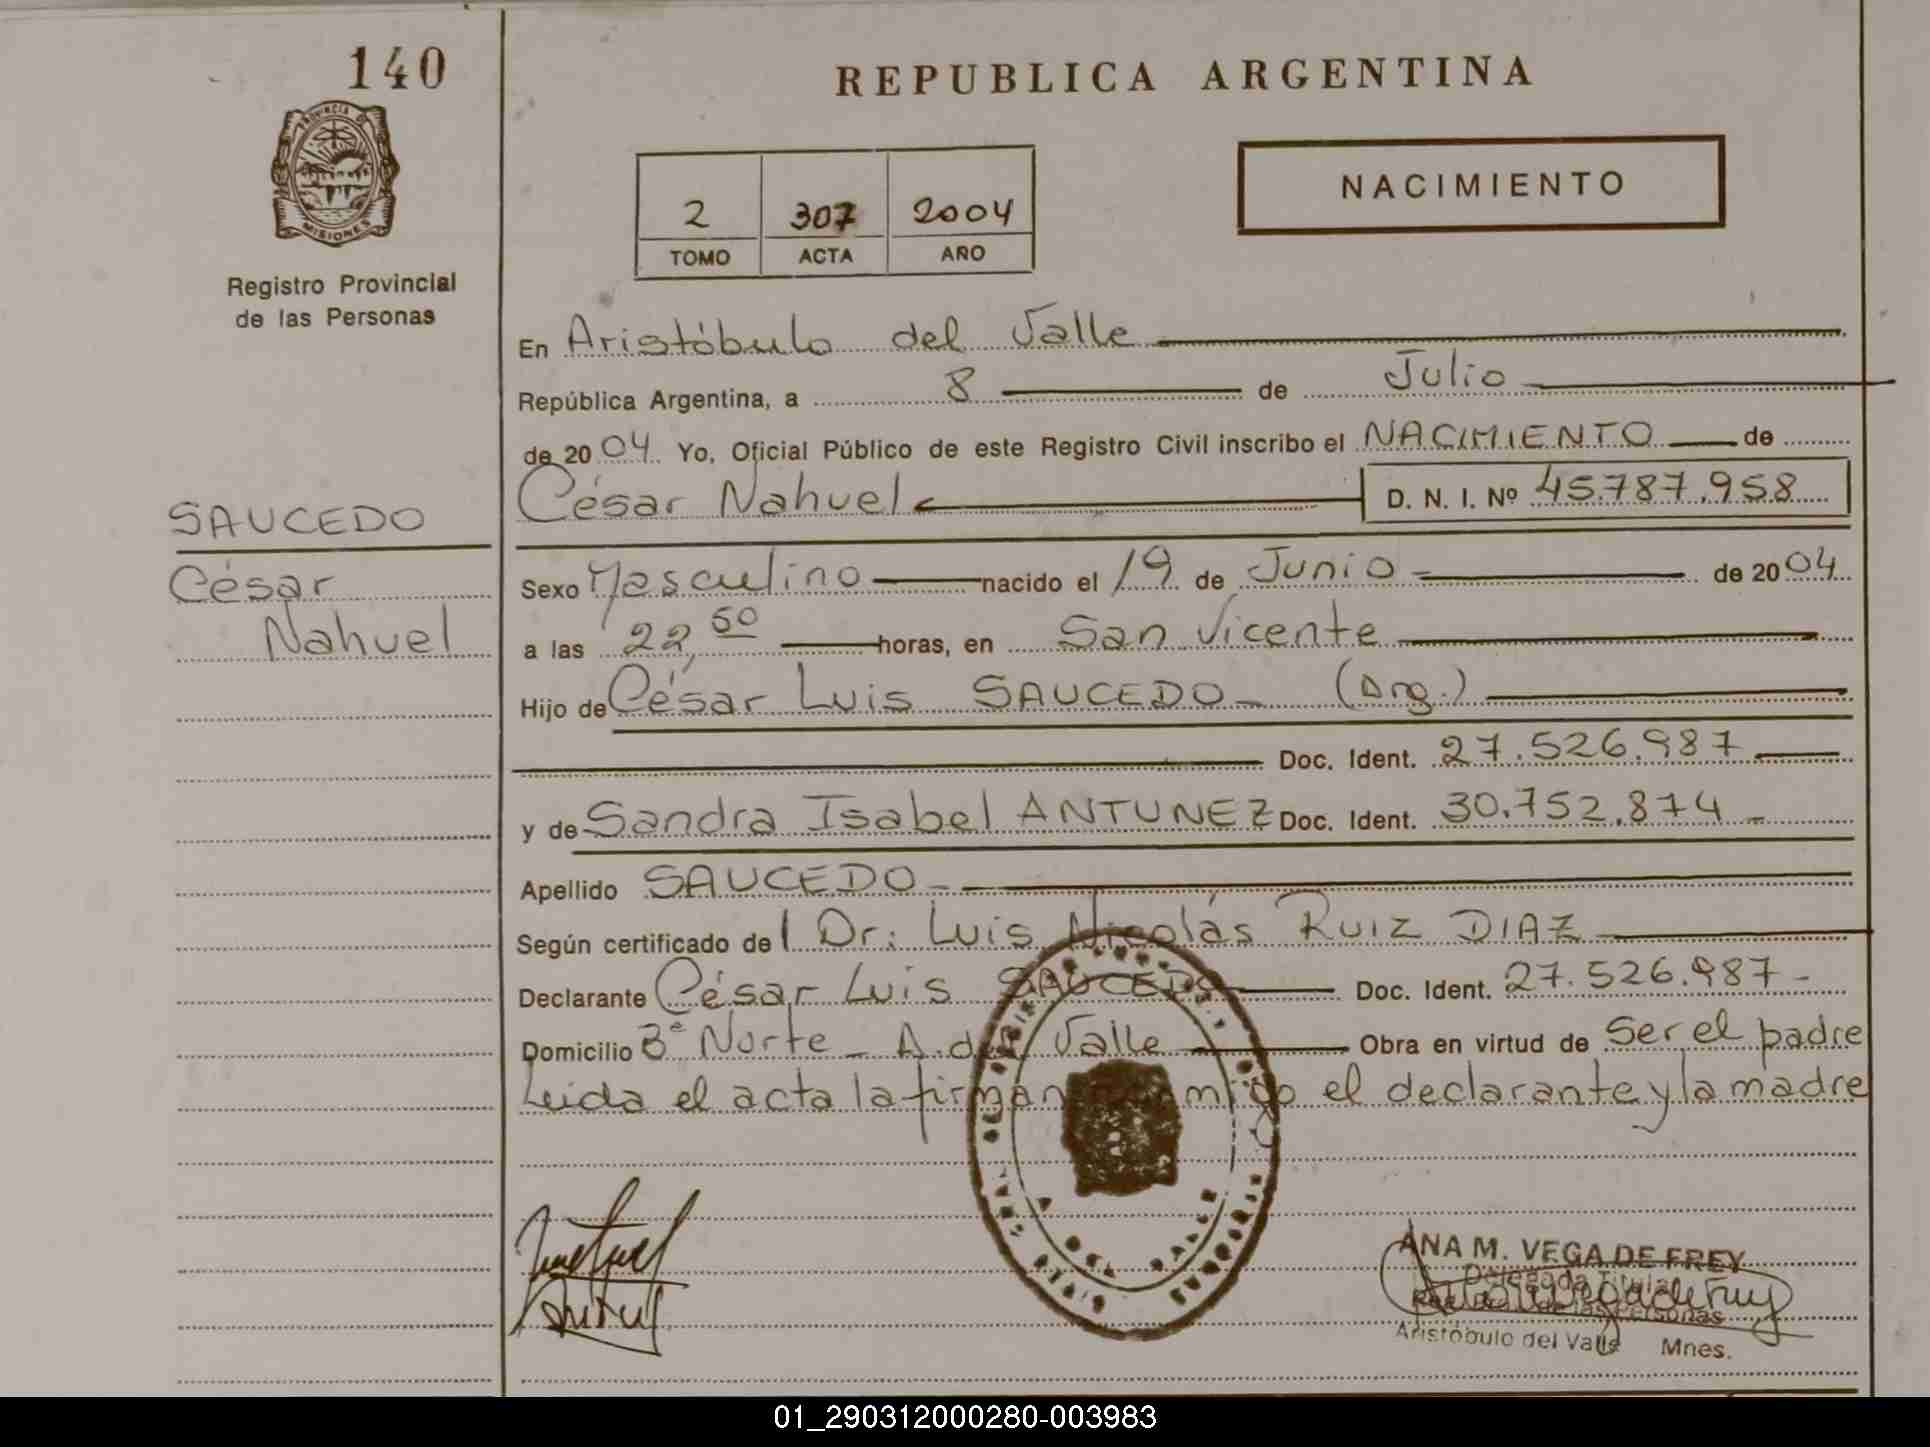 140
PROVINCIA DE
MISIONES
Registro Provincial
de las Personas
SAUCEDO
César
Nahuel
REPUBLICA ARGENTINA
2 307 2004
TOMO ACTA AÑO
NACIMIENTO
En Aristóbulo del Valle
República Argentina, a 8 de Julio
de 2004. Yo, Oficial Público de este Registro Civil inscribo el NACIMIENTO de
César Nahuel D. N. I. Nº 45.787.958
Sexo Masculino nacido el 19 de Junio de 2004
a las 22,50 horas, en San Vicente
Hijo de César Luis SAUCEDO (Arg.)
Doc. Ident. 27.526.987
y de Sandra Isabel ANTUNEZ Doc. Ident. 30.752.874
Apellido SAUCEDO
Según certificado del Dr. Luis Nicolás RUIZ DIAZ
Declarante César Luis SAUCEDO Doc. Ident. 27.526.987
Domicilio 3º Norte - A. del Valle Obra en virtud de Ser el padre
Leida el acta la firman conmigo el declarante y la madre
ANA M. VEGA DE FREY
Delegada Titular
Aristóbulo del Valle Mnes.
01_290312000280-003983